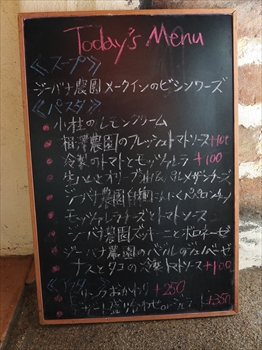 Today's Menu
≪スープ≫
ジーバナ農園メークインのビシソワーズ
≪パスタ≫
小柱のレモンクリーム
相澤農園のフレッシュトマトソース+100
冷製のトマトとモッツァレラ+100
生ハムとオリーブ
ジーバナ農園 にんにくペペロンチーノ
モッツァレラチーズ トマトソース
ジーバナ農園ズッキーニとボロネーゼ
ジーバナ農園のバジルのジェノベーゼ
ナスとタコの冷製トマトソース+100
おかわり +250
+350